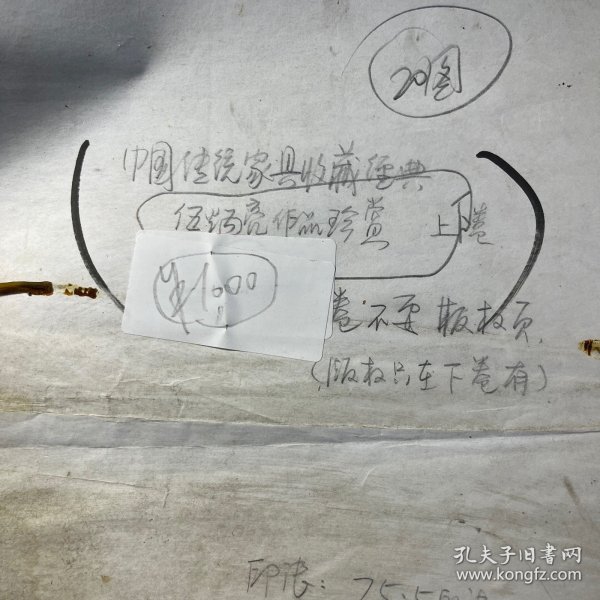 20图
中国传统家具收藏经典
伍炳亮作品珍赏 上卷
¥1000
卷不要版权页
(版权只在下卷有)
印张: 75.5印张
孔夫子旧书网
www.kongfz.com